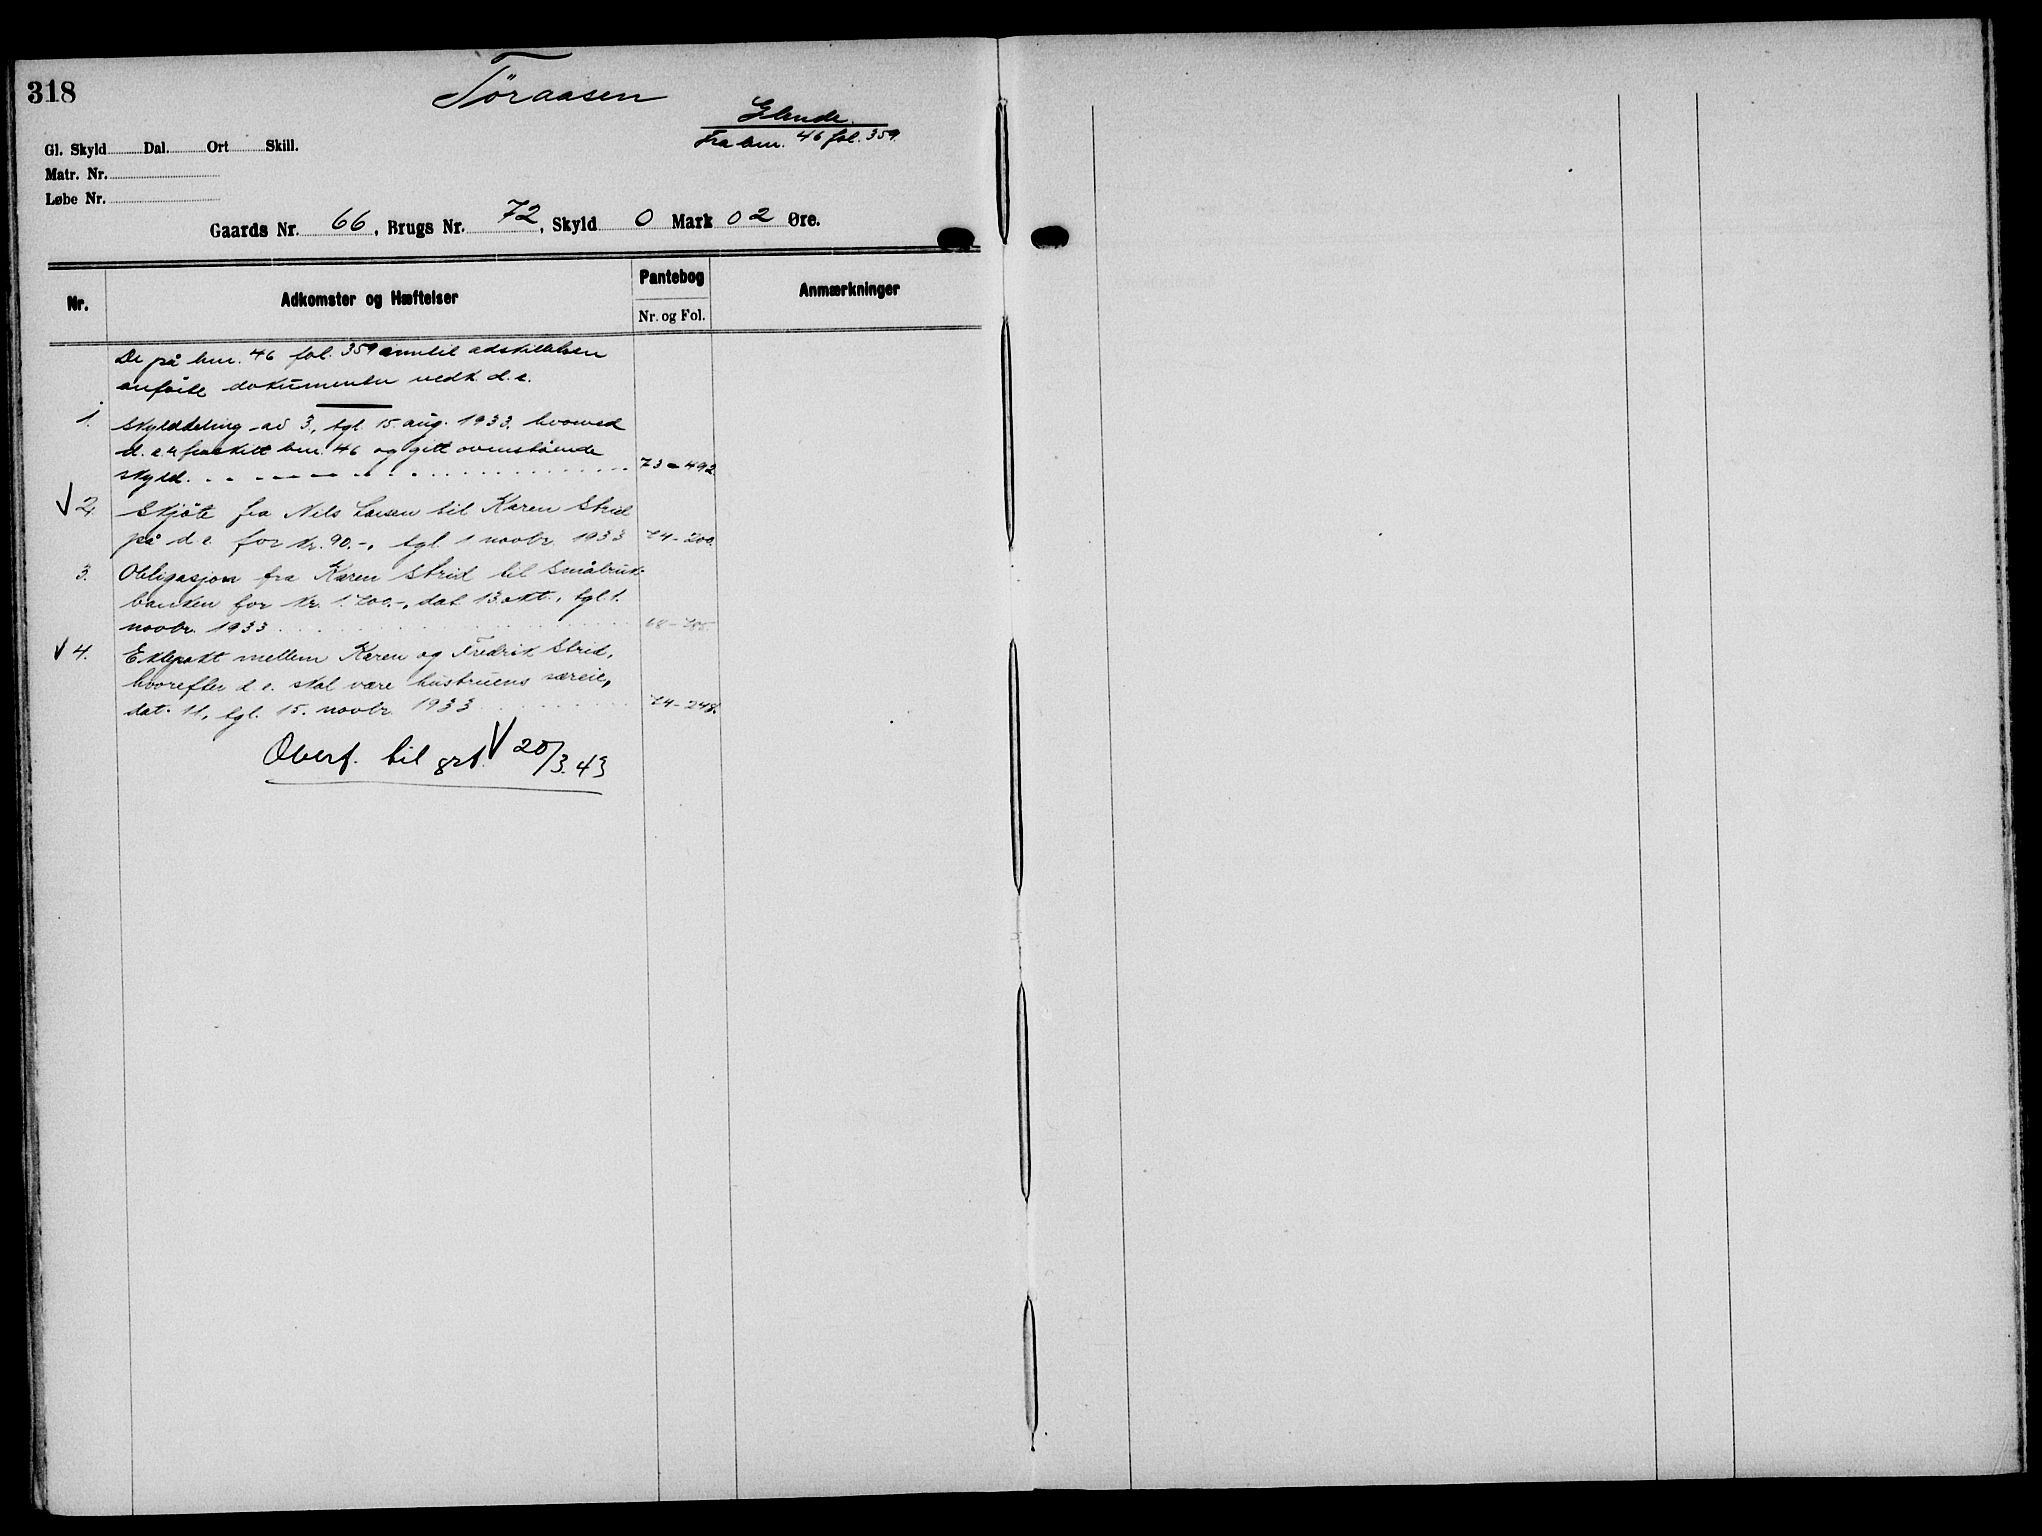 318
Tøraasen
Elende.
Fra bnr. 46 fol. 359.
Gl. Skyld Dal. Ort Skill.
Matr. Nr.
Løbe Nr.
Gaards Nr. 66, Brugs Nr. 72, Skyld 0 Mark 02 Øre.
Nr. Adkomster og Hæftelser Pantebog Anmærkninger
Nr. og Fol.
De på bnr. 46 fol. 359 inntil adskillelsen
anførte dokumenter vedk. d. e.
1. Skylddeling av 3., tgl. 15 aug. 1933, hvorved
d. e. er fraskilt bnr. 46 og gitt ovenstående
skyld. 73-492
V 2. Skjøte fra Nils Larsen til Karen Strid
på d. e. for kr. 90.-, tgl. 1 novbr. 1933 74-200.
3. Obligasjon fra Karen Strid til Småbruk-
banken for kr. 1.700.-, dat. 13 okt., tgl. 1.
novbr. 1933
V 4. Ektepakt mellem Karen og Fredrik Strid,
hvorefter d. e. skal være hustruens særeie,
dat. 11, tgl. 15. novbr. 1933 74-248.
Overf. til grb. V 20/3.43